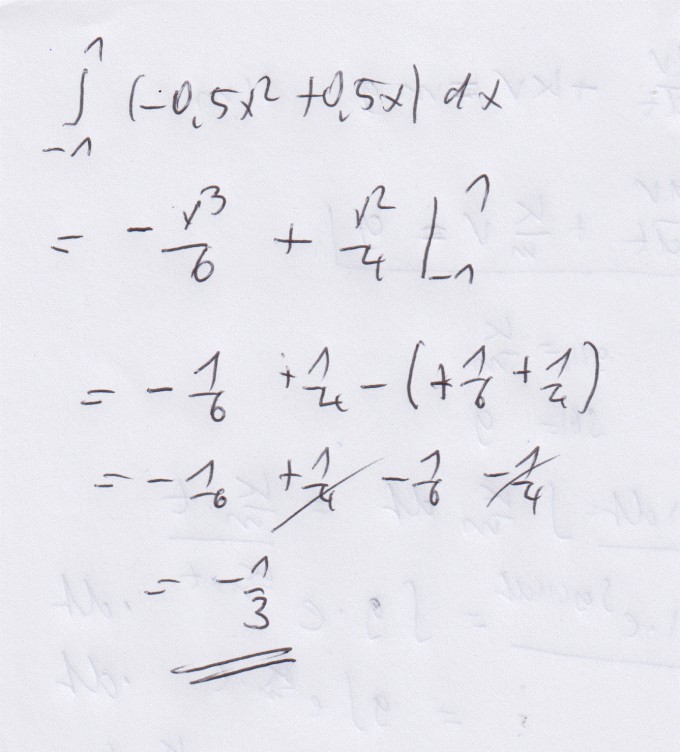 ∫_{-1}^{1} (-0,5x² + 0,5x) dx
= - x³/6 + x²/4 |_{-1}^{1}
= - 1/6 + 1/4 - (+ 1/6 + 1/4)
= - 1/6 + 1/4 - 1/6 - 1/4
= - 1/3